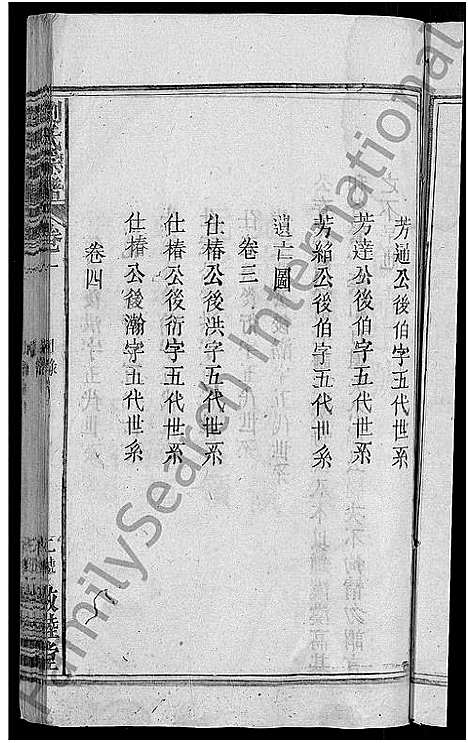 芳通公後伯字五代世系
芳達公後伯字五代世系
芳紹公後伯字五代世系
遺亡圖
卷三
仕椿公後洪字五代世系
仕椿公後衍字五代世系
仕椿公後瀚字五代世系
卷四
FamilySearch International